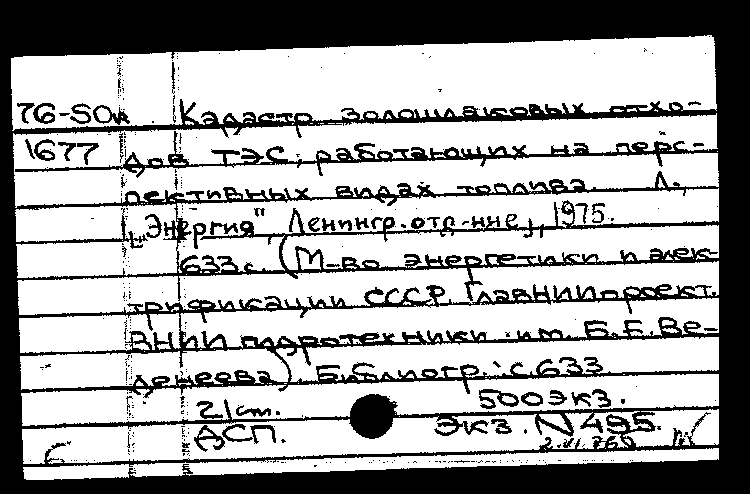 76-50 Кадастр золошлаковых отхо-
1677 дов ТЭС, работающих на перс-
пективных видах топлива. Л.,
["Энергия", Ленингр. отд-ние], 1975.
633 с. (М-во энергетики и элек-
трификации СССР. ГлавНИИпроект.
ВНИИ гидротехники им. Б.Е. Ве-
денеева). Библиогр.: с. 633
21 см. 500 экз.
ДСП. Экз. N 495.